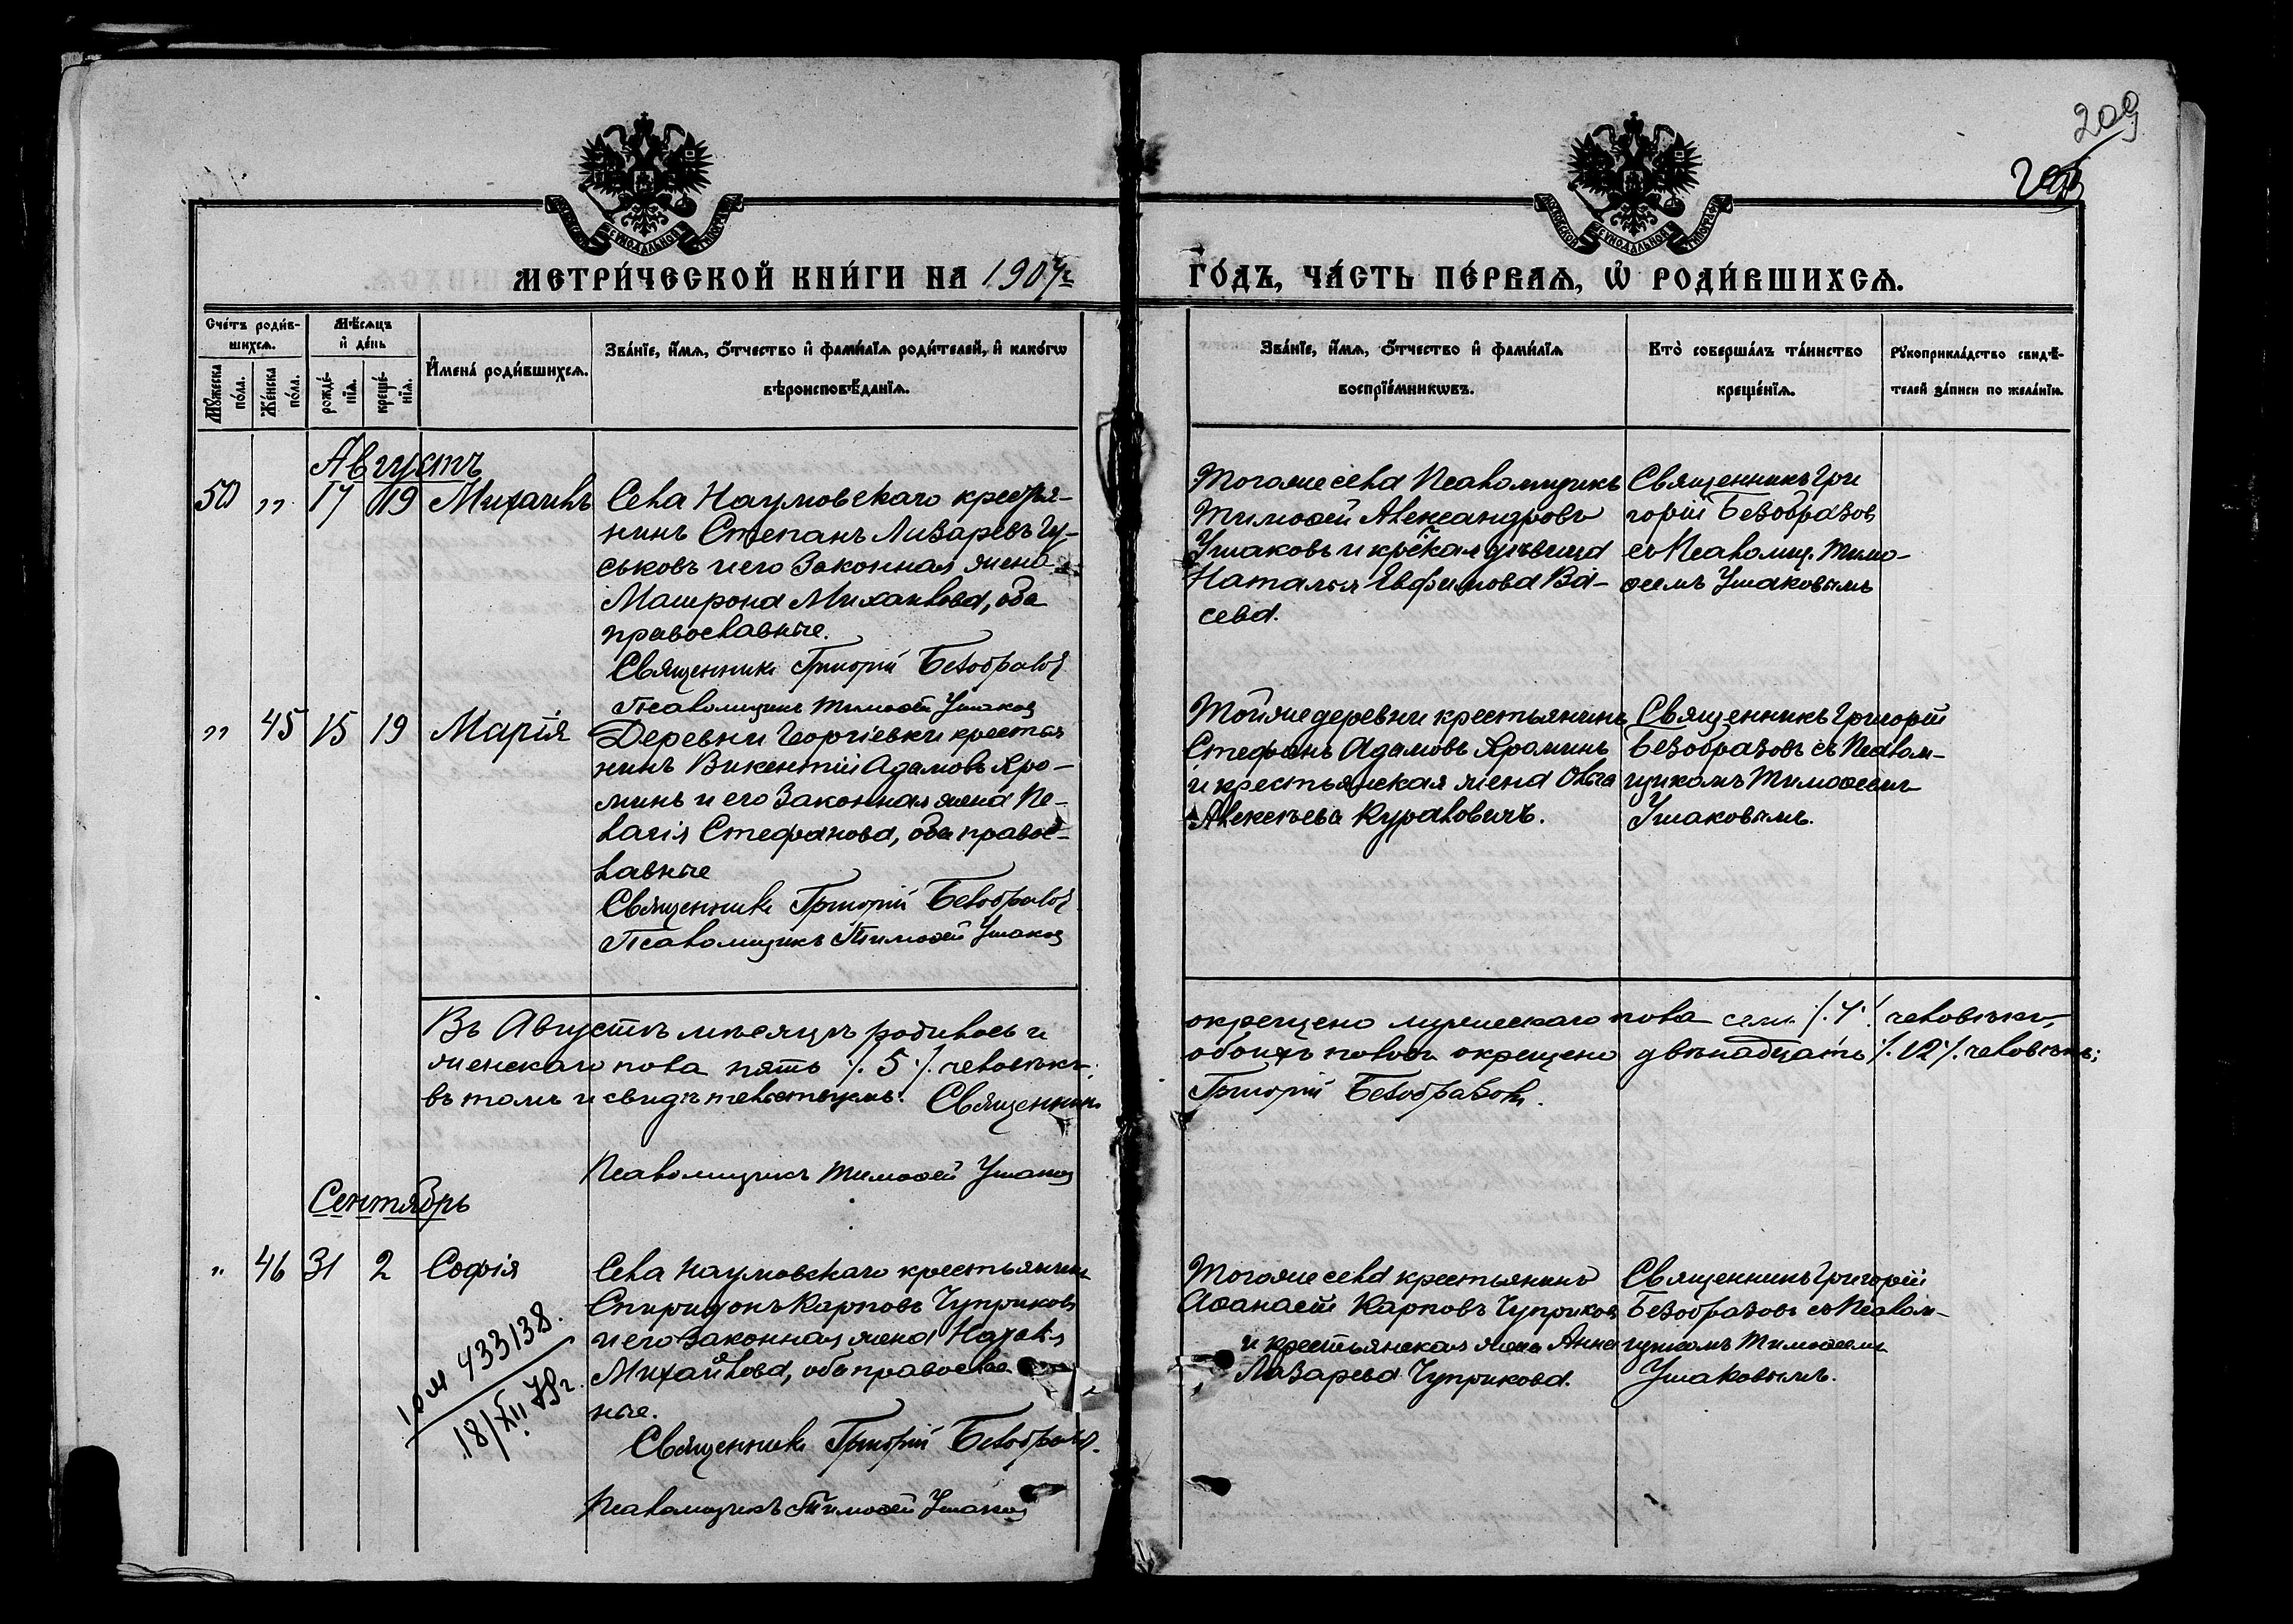 209
МОСКОВСКОЙ СѴНОДАЛЬНОЙ ТИПОГРАФІИ
МОСКОВСКОЙ СѴНОДАЛЬНОЙ ТИПОГРАФІИ
МЕТРИ́ЧЕСКОЙ КНИ́ГИ НА 1907 г.
ГО́ДЪ, ЧА́СТЬ ПЕ́РВАѦ, Ѡ҆ РОДИ́ВШИХСѦ.
Сче́тъ роди́в-
шихсѧ.
Мꙋ́жеска по́ла.
Же́нска по́ла.
Мѣ́сѧцъ
и҆ де́нь
рожде́-
нїѧ.
креще́-
нїѧ.
И҆мена̀ роди́вшихсѧ.
Зва́нїе, и҆́мѧ, ѻ҆́тчество и҆ фами́лїѧ роди́телей, и҆ како́гѡ
вѣроисповѣ́данїѧ.
Зва́нїе, и҆́мѧ, ѻ҆́тчество и҆ фами́лїѧ
воспрїе́мникѡвъ.
Кто̀ соверша́лъ та́инство
креще́нїѧ.
Рꙋкоприкла́дство свидѣ́-
телей за́писи по жела́нїю.
Августъ
50 „ 17 19 Михаилъ
Села Наумовскаго крестья-
нинъ Степанъ Лазаревъ Гу-
ськовъ и его законная жена
Матрона Михаилова, оба
православные.
Священникъ Григорій Безобразов
Псаломщикъ Тимоѳей Ушаков
Тогоже села Псаломщикъ
Тимоѳей Александровъ
Ушаковъ и крес̃кая дѣвица
Наталья Евфимова Ва-
сева.
Священникъ Гри
горій Безобразов
съ Псаломщ. Тимо-
ѳеемъ Ушаковымъ
„ 45 15 19 Марія
Деревни Георгіевки крестья
нинъ Викентій Адамовъ Яро-
минъ и его законная жена Пе-
лагія Стефанова, оба правос-
лавные
Священникъ Григорій Безобразов
Псаломщикъ Тимоѳей Ушаков
Тойже деревни крестьянинъ
Стефанъ Адамовъ Яроминъ
и крестьянская жена Ольга
Алексѣева Куралович.
Священникъ Григорій
Безобразовъ съ Псалом-
щикомъ Тимоѳеемъ
Ушаковымъ.
Въ Августѣ мѣсяцѣ родилось и окрещено мужескаго пола семь /. 7 ./ человѣкъ,
женскаго пола пять /. 5 ./ человѣкъ; обоихъ половъ окрещено двѣнадцать /. 12 ./ человѣкъ;
въ томъ и свидѣтельствуемъ: Священникъ Григорій Безобразовъ.
Псаломщикъ Тимоѳей Ушаков
Сентябрь
„ 46 31 2 Софія
Села Наумовскаго крестьянинъ
Спиридонъ Карповъ Чуприковъ
и его законная жена
Михайлова, оба правосла
ные.
Священникъ Григорій Безобразов.
Псаломщикъ Тимоѳей Ушаков
Тогоже села крестьянинъ
Аѳанасій Карповъ Чуприков
и крестьянская жена Анна
Лазарева Чуприкова.
Священникъ Григорій
Безобразовъ съ Псалом-
щикомъ Тимоѳеемъ
Ушаковымъ.
433138.
18/XII